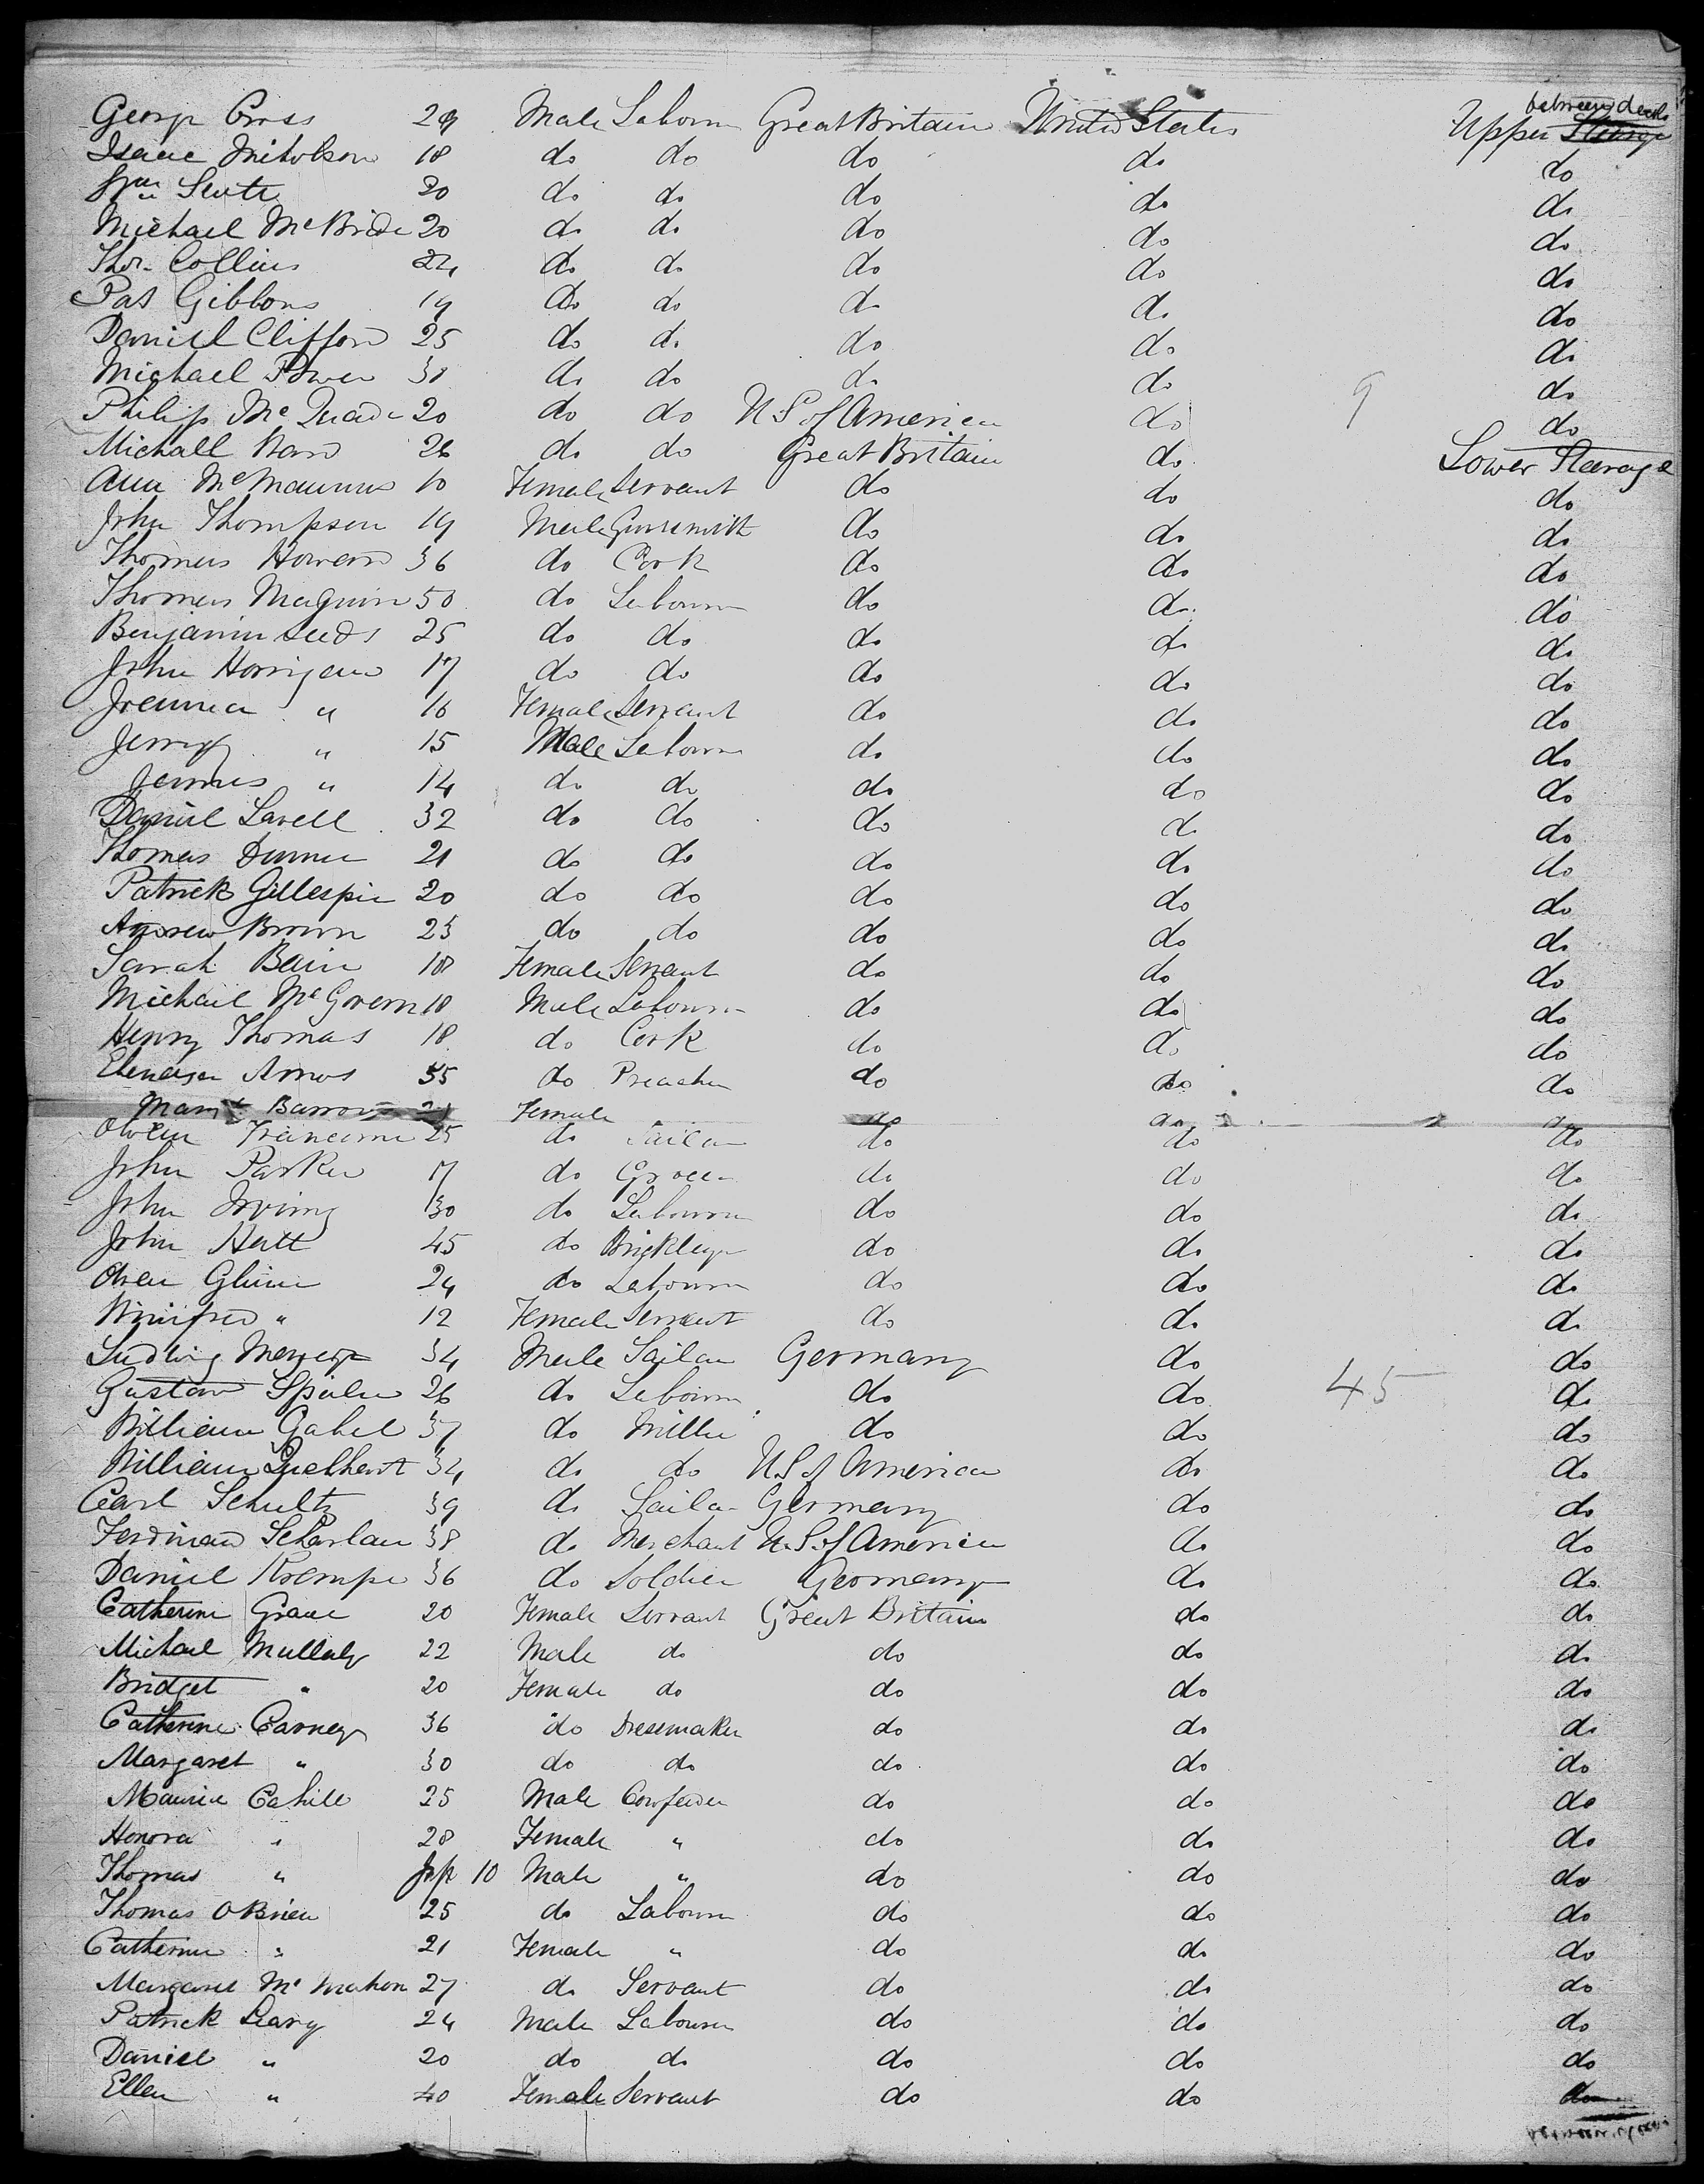 George Cross 29 Male Labourer Great Britain United States Upper between decks
Isaac Nicholson 18 do do do do do
Wm Scott 20 do do do do do
Michael McBride 20 do do do do do
Thos. Collins 24 do do do do do
Pat Gibbons 19 do do do do do
Daniel Clifford 25 do do do do do
Michael Power 38 do do do do do
Philip McQuade 20 do do U S of America do 9 do
Michall Ward 26 do do Great Britain do Lower Steerage
Ann McManus 10 Female Servant do do do
John Thompson 19 Male Gunsmith do do do
Thomas Howard 36 do Cook do do do
Thomas Maguire 50 do Labourer do do do
Benjamin Leeds 25 do do do do do
John Horrigan 17 do do do do do
Joanna " 16 Female Servant do do do
Jerry " 15 Male Labourer do do do
James " 14 do do do do do
Daniel Lavell 32 do do do do do
Thomas Dunne 21 do do do do do
Patrick Gillespie 20 do do do do do
Andrew Brown 23 do do do do do
Sarah Bain 18 Female Servant do do do
Michael McGovern 18 Male Labourer do do do
Henry Thomas 18 do Cook do do do
Ebenezer Amos 55 do Preacher do do do
Margt Barrow 21 Female do do do
Owen 25 do Tailor do do do
John Parker 17 do Grocer do do do
John Irving 30 do Labourer do do do
John Hutt 45 do Bricklayer do do do
Owen Glinn 24 do Labourer do do do
Winifred " 12 Female Servant do do do
Ludwig 34 Male Tailor Germany do do
Gustav 26 do Labourer do do 45 do
William Gabel 37 do Miller do do do
William 34 do do U S of America do do
Carl Schultz 39 do Tailor Germany do do
Ferdinand Scharlau 38 do Merchant U S of America do do
Daniel Krempe 36 do Soldier Germany do do
Catherine Grace 20 Female Servant Great Britain do do
Michael Mullaly 22 Male do do do do
Bridget " 20 Female do do do do
Catherine Carney 36 do Dressmaker do do do
Margaret " 30 do do do do do
Maurice Cahill 25 Male Cowfeeder do do do
Honora " 28 Female " do do do
Thomas " 10 Male " do do do
Thomas OBrien 25 do Labourer do do do
Catherine " 21 Female " do do do
Margaret McMahon 27 do Servant do do do
Patrick Leary 24 Male Labourer do do do
Daniel " 20 do do do do do
Ellen " 40 Female Servant do do do